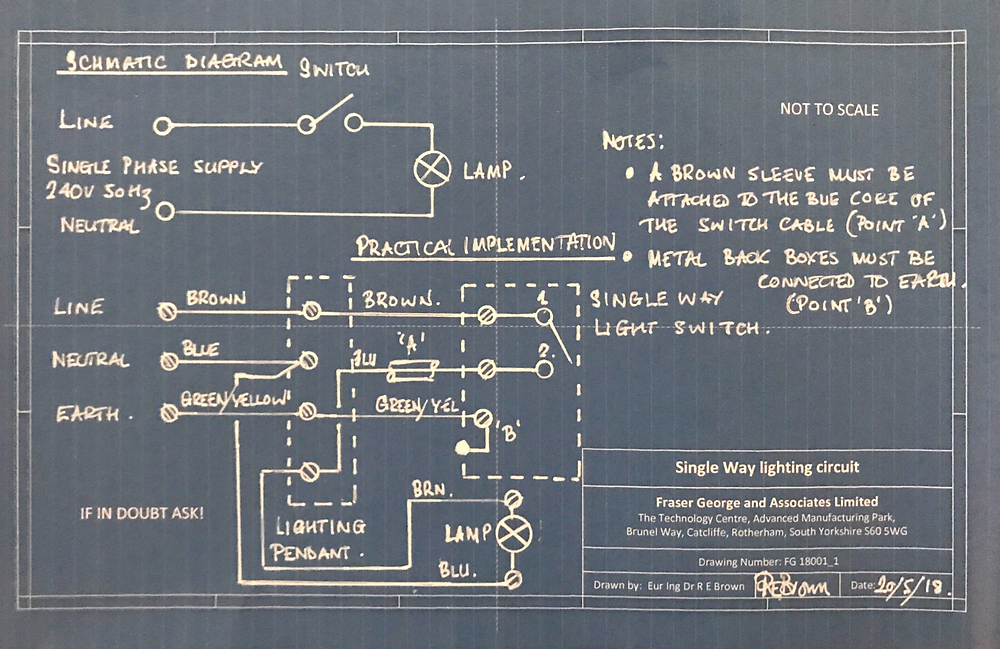 SCHMATIC DIAGRAM
SWITCH
LINE
SINGLE PHASE SUPPLY
240V 50Hz
NEUTRAL
LAMP.
NOT TO SCALE
NOTES:
• A BROWN SLEEVE MUST BE
ATTACHED TO THE BUE CORE OF
THE SWITCH CABLE (POINT 'A')
• METAL BACK BOXES MUST BE
CONNECTED TO EARTH.
(POINT 'B')
PRACTICAL IMPLEMENTATION
LINE
BROWN
BROWN.
1.
SINGLE WAY
LIGHT SWITCH.
NEUTRAL
BLUE
BLU
'A'
2.
EARTH.
GREEN/YELLOW
GREEN/YEL
'B'
LIGHTING
PENDANT.
BRN.
LAMP
BLU.
IF IN DOUBT ASK!
Single Way lighting circuit
Fraser George and Associates Limited
The Technology Centre, Advanced Manufacturing Park,
Brunel Way, Catcliffe, Rotherham, South Yorkshire S60 5WG
Drawing Number: FG 18001_1
Drawn by: Eur Ing Dr R E Brown REBrown Date: 20/5/18.